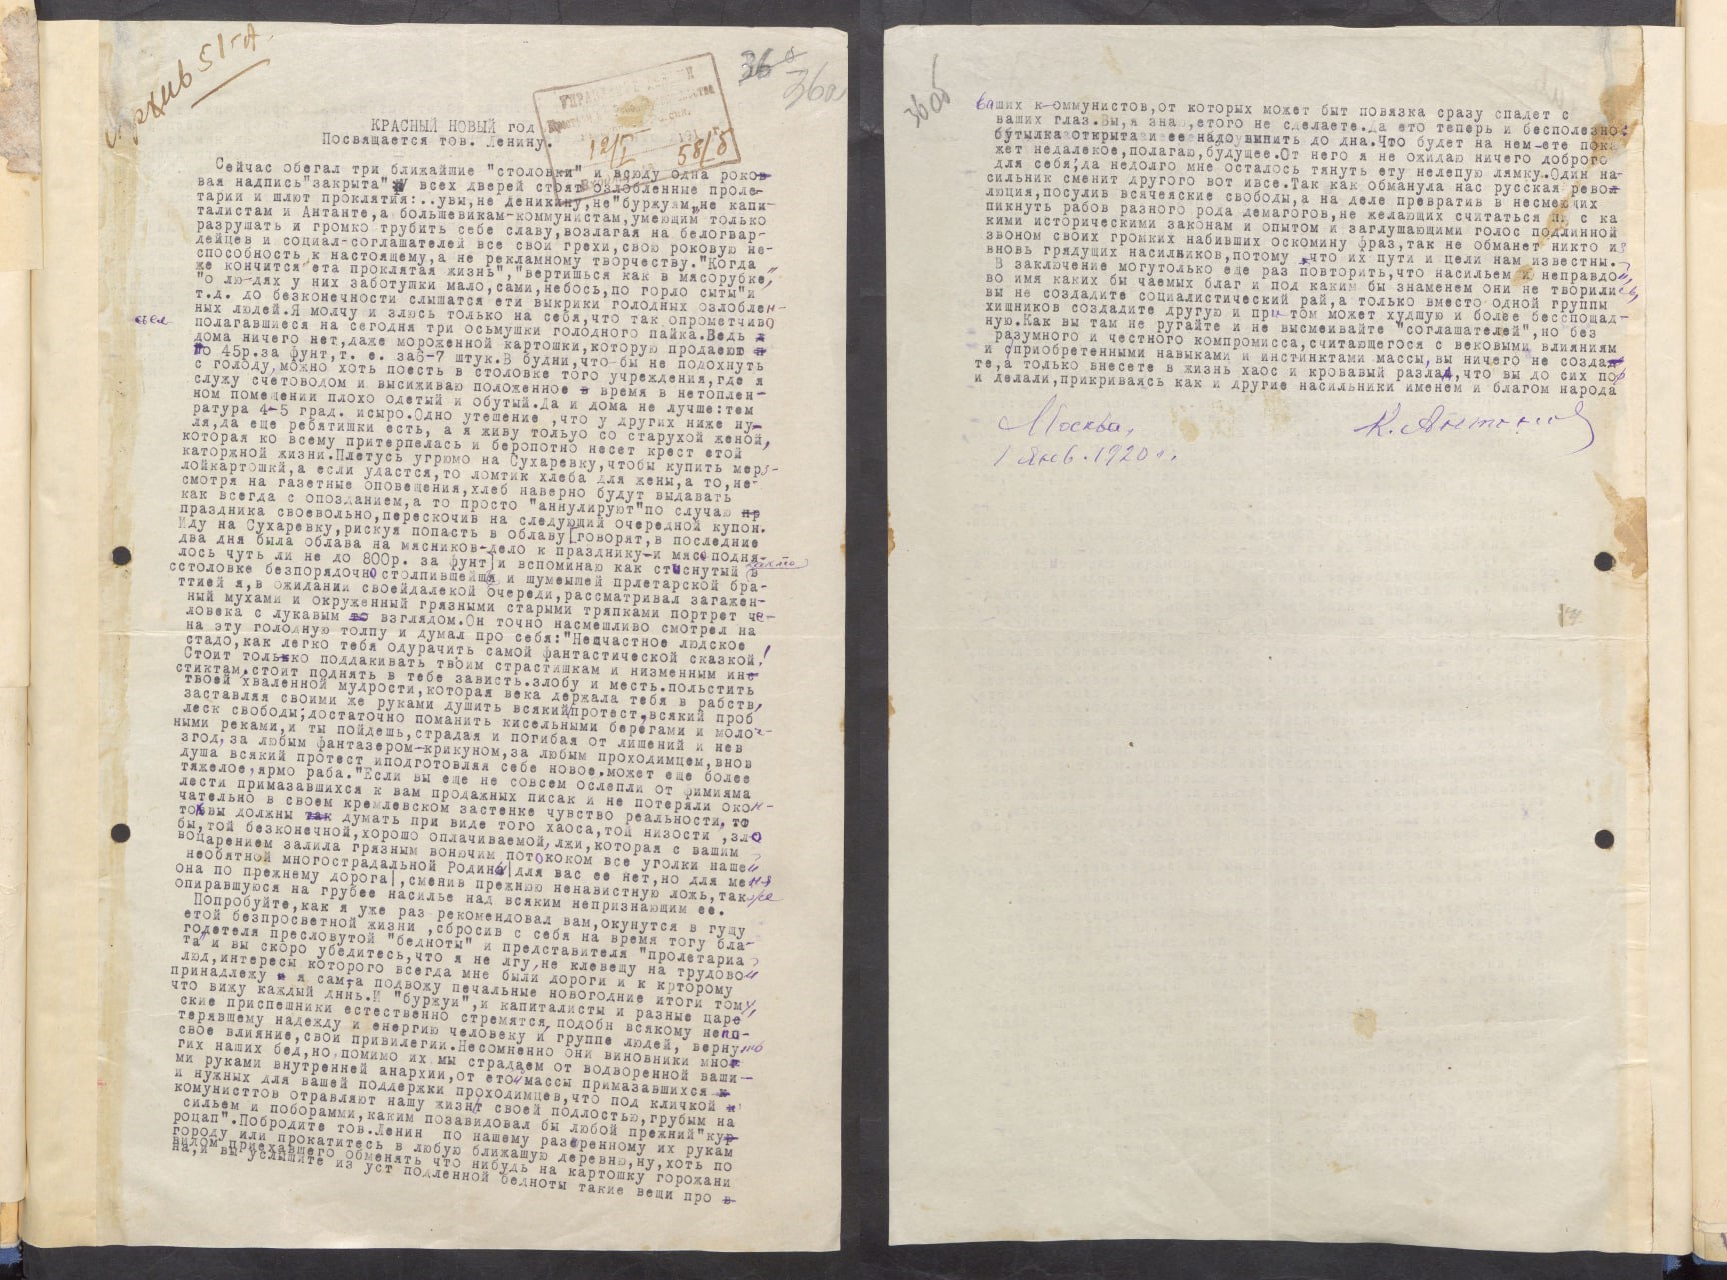 Архив 51 гд.
36 а
36а
12/I 58/8
КРАСНЫЙ НОВЫЙ год
Посвящается тов. Ленину.
Сейчас обегал три ближайшие "столовки" и всюду одна роков
вая надпись"закрыта" У всех дверей стоят озлобленные проле-
тарии и шлют проклятия:..увы,не Деникину,не"буржуям",не капи-
талистам и Антанте,а большевикам-коммунистам,умеющим только
разрушать и громко трубить себе славу,возлагая на белогвар-
дейцев и социал-соглашателей все свои грехи,свою роковую не-
способность к настоящему,а не рекламному творчеству."Когда
же кончится ета проклятая жизнь","вертишься как в мясорубке",
"о лю-дях у них заботушки мало,сами,небось,по горло сыты"и
т.д. до безконечности слышатся ети выкрики голодных озлоблен-
ных людей.Я молчу и злюсь только на себя,что так опрометчиво
съел
полагавшиеся на сегодня три осьмушки голодного пайка.Ведь
дома ничего нет,даже мороженной картошки,которую продаюю
по 45р.за фунт,т. е. за6-7 штук.В будни,что-бы не подохнуть
с голоду,можно хоть поесть в столовке того учреждения,где я
служу счетоводом и высиживаю положенное в время в нетоплен-
ном помещении плохо одетый и обутый.Да и дома не лучше:тем
ратура 4-5 град. исыро.Одно утешение ,что у других ниже ну-
ля,да еще ребятишки есть, а я живу тольуо со старухой женой,
которая ко всему притерпелась и беропотно несет крест етой
каторжной жизни.Плетусь угрюмо на Сухаревку,чтобы купить мерз-
лойкартошкй,а если удастся,то ломтик хлеба для жены,а то,не-
смотря на газетные оповещения,хлеб наверно будут выдавать
как всегда с опозданием,а то просто "аннулируют"по случаю пр
праздника своевольно,перескочив на следующий очередной купон.
Иду на Сухаревку,рискуя попасть в облаву[говорят,в последние
два дня была облава на мясников-дело к празднику-и мясо подня-
лось чуть ли не до 800р. за фунт]и вспоминаю как стиснутый в
сстоловке безпорядочно столпившейщя и шумеышей прлетарской бра-
ттией я,в ожидании своейдалекой очереди,рассматривал загажен-
ный мухами и окруженный грязными старыми тряпками портрет че-
ловека с лукавым то взглядом.Он точно насмешливо смотрел на
на эту голодную толпу и думал про себя:"Нещчастное людское
стадо,как легко тебя одурачить самой фантастической сказкой!
Стоит только поддакивать твоим страстишкам и низменным инс
стиктам,стоит поднять в тебе зависть.злобу и месть.польстить
твоей хваленной мудрости,которая века держала тебя в рабств,
заставляя своими же руками душить всякий протест,всякий проб
леск свободы;достаточно поманить кисельными берегами и молоч-
ными реками,и ты пойдешь,страдая и погибая от лишений и нев
згод,за любым фантазером-крикуном,за любым проходимцем,внов
душа всякий протест иподготовляя себе новое.может еще более
тяжелое,ярмо раба."Если вы еще не совсем ослепли от фимияма
лести примазавшихся к вам продажных писак и не потеряли окон-
чательно в своем кремлевском застенке чувство реальности,то
товы должны так думать при виде того хаоса,той низости ,зло
бы,той безконечной,хорошо оплачиваемой,лжи,которая с вашим
воцарением залила грязным вонючим потококом все уголки нашей
необятной многострадальной Родины|для вас ее нет,но для меня
она по прежнему дорога|,сменив прежнюю ненавистную ложь,также
опиравшуюся на грубее насилье над всяким непризнающим ее.
Попробуйте,как я уже раз рекомендовал вам,окунутся в гущу
етой безпросветной жизни ,сбросив с себя на время тогу бла-
годетеля пресловутой "бедноты" и представителя "пролетариа
та" и вы скоро убедитесь,что я не лгу,не клевещу на трудовой
люд,интересы которого всегда мне были дороги и к крторому
принадлежу и я сам,а подвожу печальные новогодние итоги тому,
что вижу каждый динь.И "буржуи",и капиталисты и разные царс
ские приспешники естественно стремятся,подобн всякому непо-
терявшему надежду и енергию человеку и группе людей, вернуть
свое влияние,свои привилегии.Несомненно они виновники мног
гих наших бед,но,помимо их мы страдаем от водворенной ваши-
ми руками внутренней анархии,от етой массы примазавшихся к
и нужных для вашей поддержки проходимцев,что под кличкой к
комунисттов отравляют нашу жизнт своей подлостью,грубым на
сильем и поборамми,каким позавидовал бы любой прежний"кур
роцап".Побродите тов.Ленин по нашему разеренному их рукам
городу или прокатитесь в любую ближашую деревню,ну,хоть по
видом приехавшего обменять что нибудь на картошку горожани
на,и вы услышите из уст подленной бедноты такие вещи про в
36об
ваших к-оммунистов,от которых может быт повязка сразу спадет с
ваших глаз.Вы,я знаю,етого не сделаете.да ето теперь и бесполезно:
бутылкаоткрытаиее надовыпить до дна.Что будет на нем-ете пока
жет недалекое,полагаю,будущее.От него я не ожидаю ничего доброго
для себя;да недолго мне осталось тянуть ету нелепую лямку.Один на-
сильник сменит другого вот ивсе.Так как обманула нас русская револ
люция,посулив всячеяские свободы,а на деле превратив в несмеющих
пикнуть рабов разного рода демагогов,не желающих считаться ни с ка
кими историческими законам и опытом и заглушающими голос подлинной
звоном своих громких набивших оскомину фраз,так не обманет никто из
вновь грядущих насилников,потому что их пути и цели нам известны.
В заключение могутолько еще раз повторить,что насильем и неправдой,
во имя каких бы чаемых благ и под каким бы знаменем они не творились,
вы не создадите социалистический рай,а только вместо одной группы
хищников создадите другую и при том может худшую и более бесспощад-
ную.Как вы там не ругайте и не высмеивайте "соглашателей",но без
разумного и честного компромисса,считающегося с вековыми влияниям
и сприобретенными навыками и инстинктами массы,вы ничего не создая
те,а только внесете в жизнь хаос и кровавый разлад,что вы до сих пор
и делали,прикриваясь как и другие насильники именем и благом народа
Москва,
1 янв. 1920 г.
К. Антонов